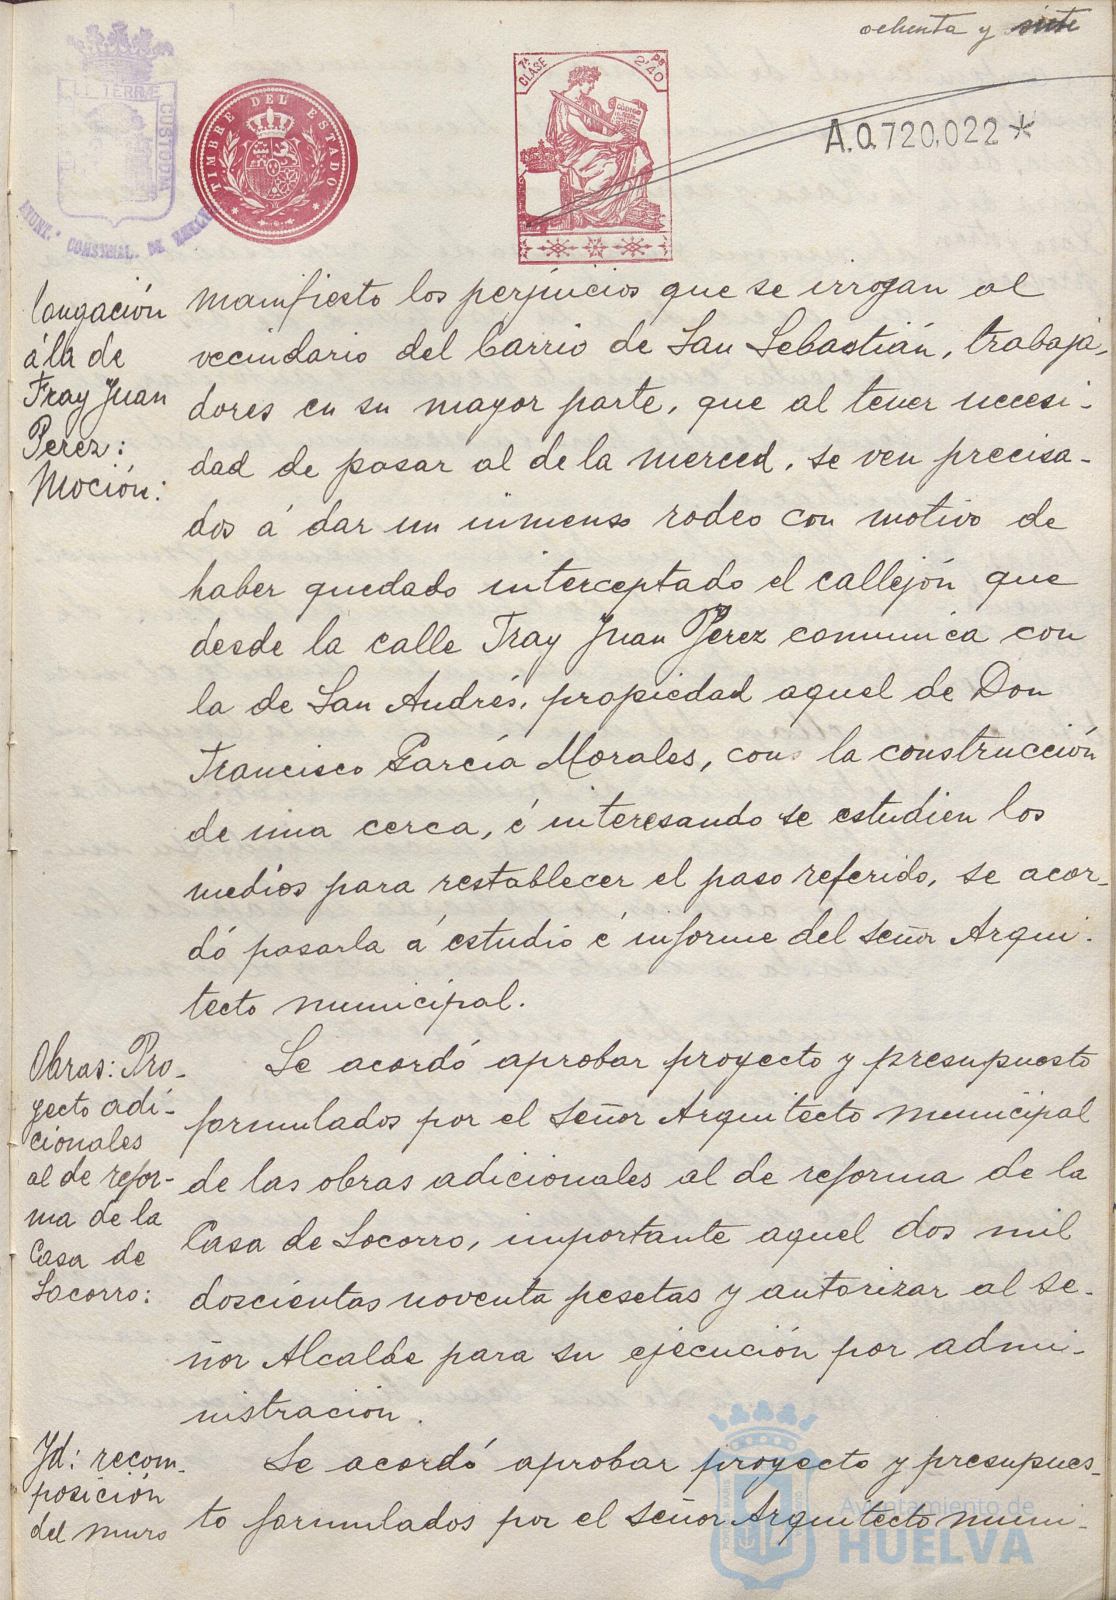 ochenta y siete
TIMBRE DEL ESTADO
7ª CLASE
Ps 2'40
CODIGO
A.0.720,022*
CUSTODIA
AYUNT.º CONSTNAL. DE HUELVA
longación
á la de
Fray Juan
Perez:
Moción:
manifiesto los perjuicios que se irrogan al
vecindario del barrio de San Sebastián, trabaja-
dores en su mayor parte, que al tener necesi-
dad de pasar al de la merced, se ven precisa-
dos á dar un inmenso rodeo con motivo de
haber quedado interceptado el callejón que
desde la calle Fray Juan Perez comunica con
la de San Andrés, propiedad aquel de Don
Francisco García Morales, con la construcción
de una cerca, é interesando se estudien los
medios para restablecer el paso referido, se acor-
dó pasarla á estudio é informe del señor Arqui-
tecto municipal.
Obras: Pro-
yecto adi-
cionales
al de refor-
ma de la
Casa de
Socorro:
Se acordó aprobar proyecto y presupuesto
formulados por el señor Arquitecto municipal
de las obras adicionales al de reforma de la
Casa de Socorro, importante aquel dos mil
doscientas noventa pesetas y autorizar al se-
ñor Alcalde para su ejecución por admi-
nistración.
Id: recom-
posición
del muro
Se acordó aprobar proyecto y presupues-
to formulados por el señor Arquitecto muni-
Ayuntamiento de
HUELVA